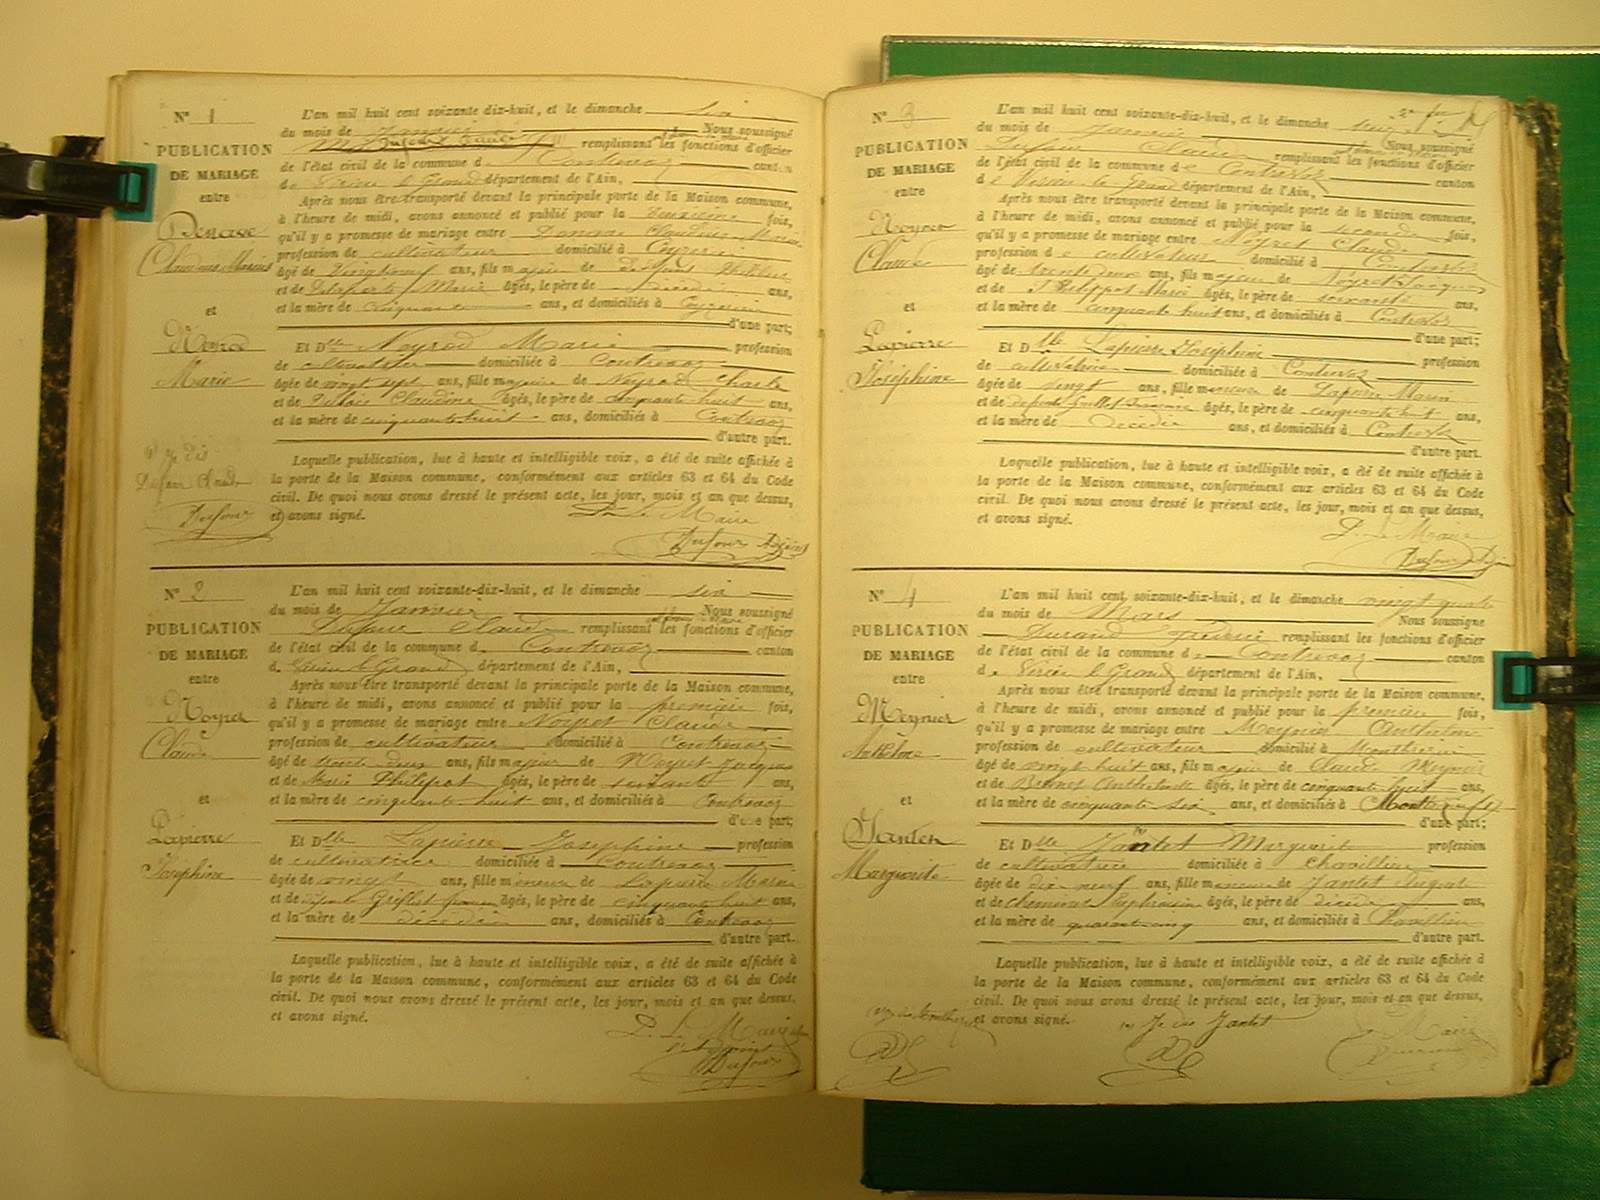 N° 1
PUBLICATION
DE MARIAGE
entre
Claudius Marius
et
Neyrod
Marie
Dufour Claude
Dufour
L'an mil huit cent soixante dix-huit, et le dimanche six
du mois de Janvier Nous soussigné
remplissant les fonctions d'officier
de l'état civil de la commune de Contrevoz canton
de Virieu le Grand département de l'Ain,
Après nous être transporté devant la principale porte de la Maison commune,
à l'heure de midi, avons annoncé et publié pour la deuxième fois,
qu'il y a promesse de mariage entre Claudius Marius
profession de cultivateur domicilié à
âgé de ans, fils majeur de
et de Marie âgés, le père de décédé ans,
et la mère de cinquante ans, et domiciliés à
d'une part;
Et Dlle Neyrod Marie profession
de cultivatrice domiciliée à Contrevoz
âgée de vingt sept ans, fille majeure de Neyrod Charle
et de Claudine âgés, le père de cinquante huit ans,
et la mère de cinquante huit ans, domiciliés à Contrevoz
d'autre part.
Laquelle publication, lue à haute et intelligible voix, a été de suite affichée à
la porte de la Maison commune, conformément aux articles 63 et 64 du Code
civil. De quoi nous avons dressé le présent acte, les jour, mois et an que dessus,
et avons signé.
P. Le Maire
Dufour Adjoint
N° 2
PUBLICATION
DE MARIAGE
entre
Neyret
Claude
et
Lapierre
Joséphine
L'an mil huit cent soixante-dix-huit, et le dimanche six
du mois de Janvier Nous soussigné
Dufour Claude remplissant les fonctions d'officier
de l'état civil de la commune de Contrevoz canton
de Virieu le Grand département de l'Ain,
Après nous être transporté devant la principale porte de la Maison commune,
à l'heure de midi, avons annoncé et publié pour la première fois,
qu'il y a promesse de mariage entre Neyret Claude
profession de cultivateur domicilié à Contrevoz
âgé de trente deux ans, fils majeur de Neyret Jacques
et de Marie Philippot âgés, le père de soixante ans,
et la mère de cinquante huit ans, et domiciliés à Contrevoz
d'une part;
Et Dlle Lapierre Joséphine profession
de cultivatrice domiciliée à Contrevoz
âgée de vingt ans, fille mineure de Lapierre Marin
et de défunte âgés, le père de cinquante huit ans,
et la mère de décédée ans, domiciliés à Contrevoz
d'autre part.
Laquelle publication, lue à haute et intelligible voix, a été de suite affichée à
la porte de la Maison commune, conformément aux articles 63 et 64 du Code
civil. De quoi nous avons dressé le présent acte, les jour, mois et an que dessus,
et avons signé.
P. Le Maire
Dufour
N° 3
PUBLICATION
DE MARIAGE
entre
Neyret
Claude
et
Lapierre
Joséphine
L'an mil huit cent soixante-dix-huit, et le dimanche
du mois de Janvier Nous soussigné
Dufour Claude remplissant les fonctions d'officier
de l'état civil de la commune de Contrevoz canton
de Virieu le Grand département de l'Ain,
Après nous être transporté devant la principale porte de la Maison commune,
à l'heure de midi, avons annoncé et publié pour la seconde fois,
qu'il y a promesse de mariage entre Neyret Claude
profession de cultivateur domicilié à Contrevoz
âgé de trente deux ans, fils majeur de Neyret Jacques
et de Philippot Marie âgés, le père de soixante ans,
et la mère de cinquante huit ans, et domiciliés à Contrevoz
d'une part;
Et Dlle Lapierre Joséphine profession
de cultivatrice domiciliée à Contrevoz
âgée de vingt ans, fille mineure de Lapierre Marin
et de défunte âgés, le père de cinquante huit ans,
et la mère de décédée ans, domiciliés à Contrevoz
d'autre part.
Laquelle publication, lue à haute et intelligible voix, a été de suite affichée à
la porte de la Maison commune, conformément aux articles 63 et 64 du Code
civil. De quoi nous avons dressé le présent acte, les jour, mois et an que dessus,
et avons signé.
P. Le Maire
Dufour
N° 4
PUBLICATION
DE MARIAGE
entre
Meynier
Anthelme
et
Marguerite
L'an mil huit cent soixante-dix-huit, et le dimanche vingt quatre
du mois de Mars Nous soussigné
Durand remplissant les fonctions d'officier
de l'état civil de la commune de Contrevoz canton
de Virieu le Grand département de l'Ain,
Après nous être transporté devant la principale porte de la Maison commune,
à l'heure de midi, avons annoncé et publié pour la première fois,
qu'il y a promesse de mariage entre Meynier Anthelme
profession de cultivateur domicilié à
âgé de vingt huit ans, fils majeur de Claude Meynier
et de âgés, le père de cinquante huit ans,
et la mère de cinquante six ans, et domiciliés à
d'une part;
Et Dlle Jantet Marguerite profession
de cultivatrice domiciliée à
âgée de dix neuf ans, fille mineure de Jantet
et de âgés, le père de décédé ans,
et la mère de quarante cinq ans, et domiciliés à
d'autre part.
Laquelle publication, lue à haute et intelligible voix, a été de suite affichée à
la porte de la Maison commune, conformément aux articles 63 et 64 du Code
civil. De quoi nous avons dressé le présent acte, les jour, mois et an que dessus,
et avons signé.
Jantet
Le Maire